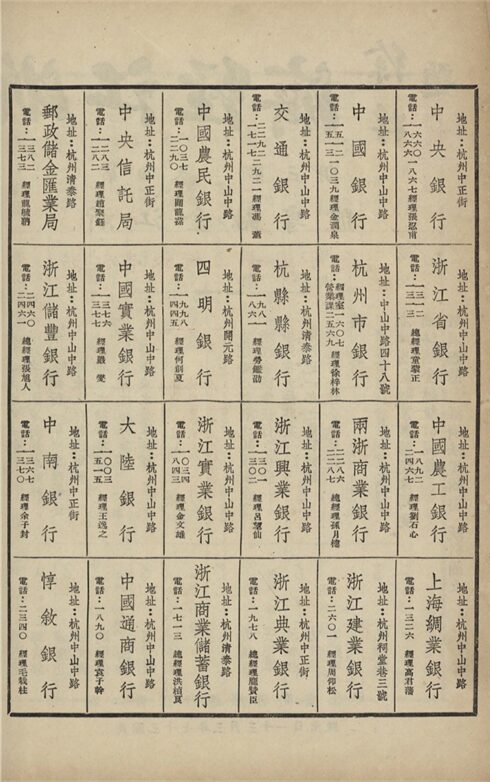 中央銀行
地址：杭州中正街
電話：一六六〇 一八六七
經理張忍甫
中國銀行
地址：杭州中山中路
經理金潤泉
交通銀行
地址：杭州中山中路
中國農民銀行
地址：杭州中山中路
電話：一〇三七 二二九〇
中央信託局
地址：杭州中正街
電話：一二八三 一二八二
郵政儲金匯業局
地址：杭州清泰路
電話：一三八二 一三七三
浙江省銀行
地址：杭州中山中路
總經理童蒙正
杭州市銀行
地址：中山中路四十八號
電話：經理室一六〇七 營業課二五六九
經理徐梓林
杭縣縣銀行
地址：杭州清泰路
四明銀行
地址：杭州開元路
中國實業銀行
地址：杭州中山中路
電話：一三七六 一三七七
浙江儲豐銀行
地址：杭州中山中路
電話：二四六〇 二四六一
總經理張旭人
中國農工銀行
地址：杭州中山中路
電話：一八九二 二四六七
經理劉石心
兩浙商業銀行
地址：杭州中山中路
電話：二二八六 二二八七
浙江興業銀行
地址：杭州中山中路
電話：一三〇一 一三〇二
經理呂望仙
浙江實業銀行
地址：杭州中山中路
電話：一〇三四 一八四三
經理金文雄
大陸銀行
地址：杭州中山中路
電話：一〇〇三 一五一五
經理王逸之
中南銀行
地址：杭州中正街
電話：一三六七 一三七〇
經理余子封
上海綢業銀行
地址：杭州中山中路
電話：一三二六
經理高君藩
浙江建業銀行
地址：杭州祠堂巷三號
電話：二六〇一
經理周仰松
浙江典業銀行
地址：杭州中正街
電話：一九七八
總經理龐贊臣
浙江商業儲蓄銀行
地址：杭州清泰路
電話：一七一三
中國通商銀行
地址：杭州中山中路
電話：一八九〇
經理袁子幹
惇敘銀行
地址：杭州中山中路
電話：二三四〇